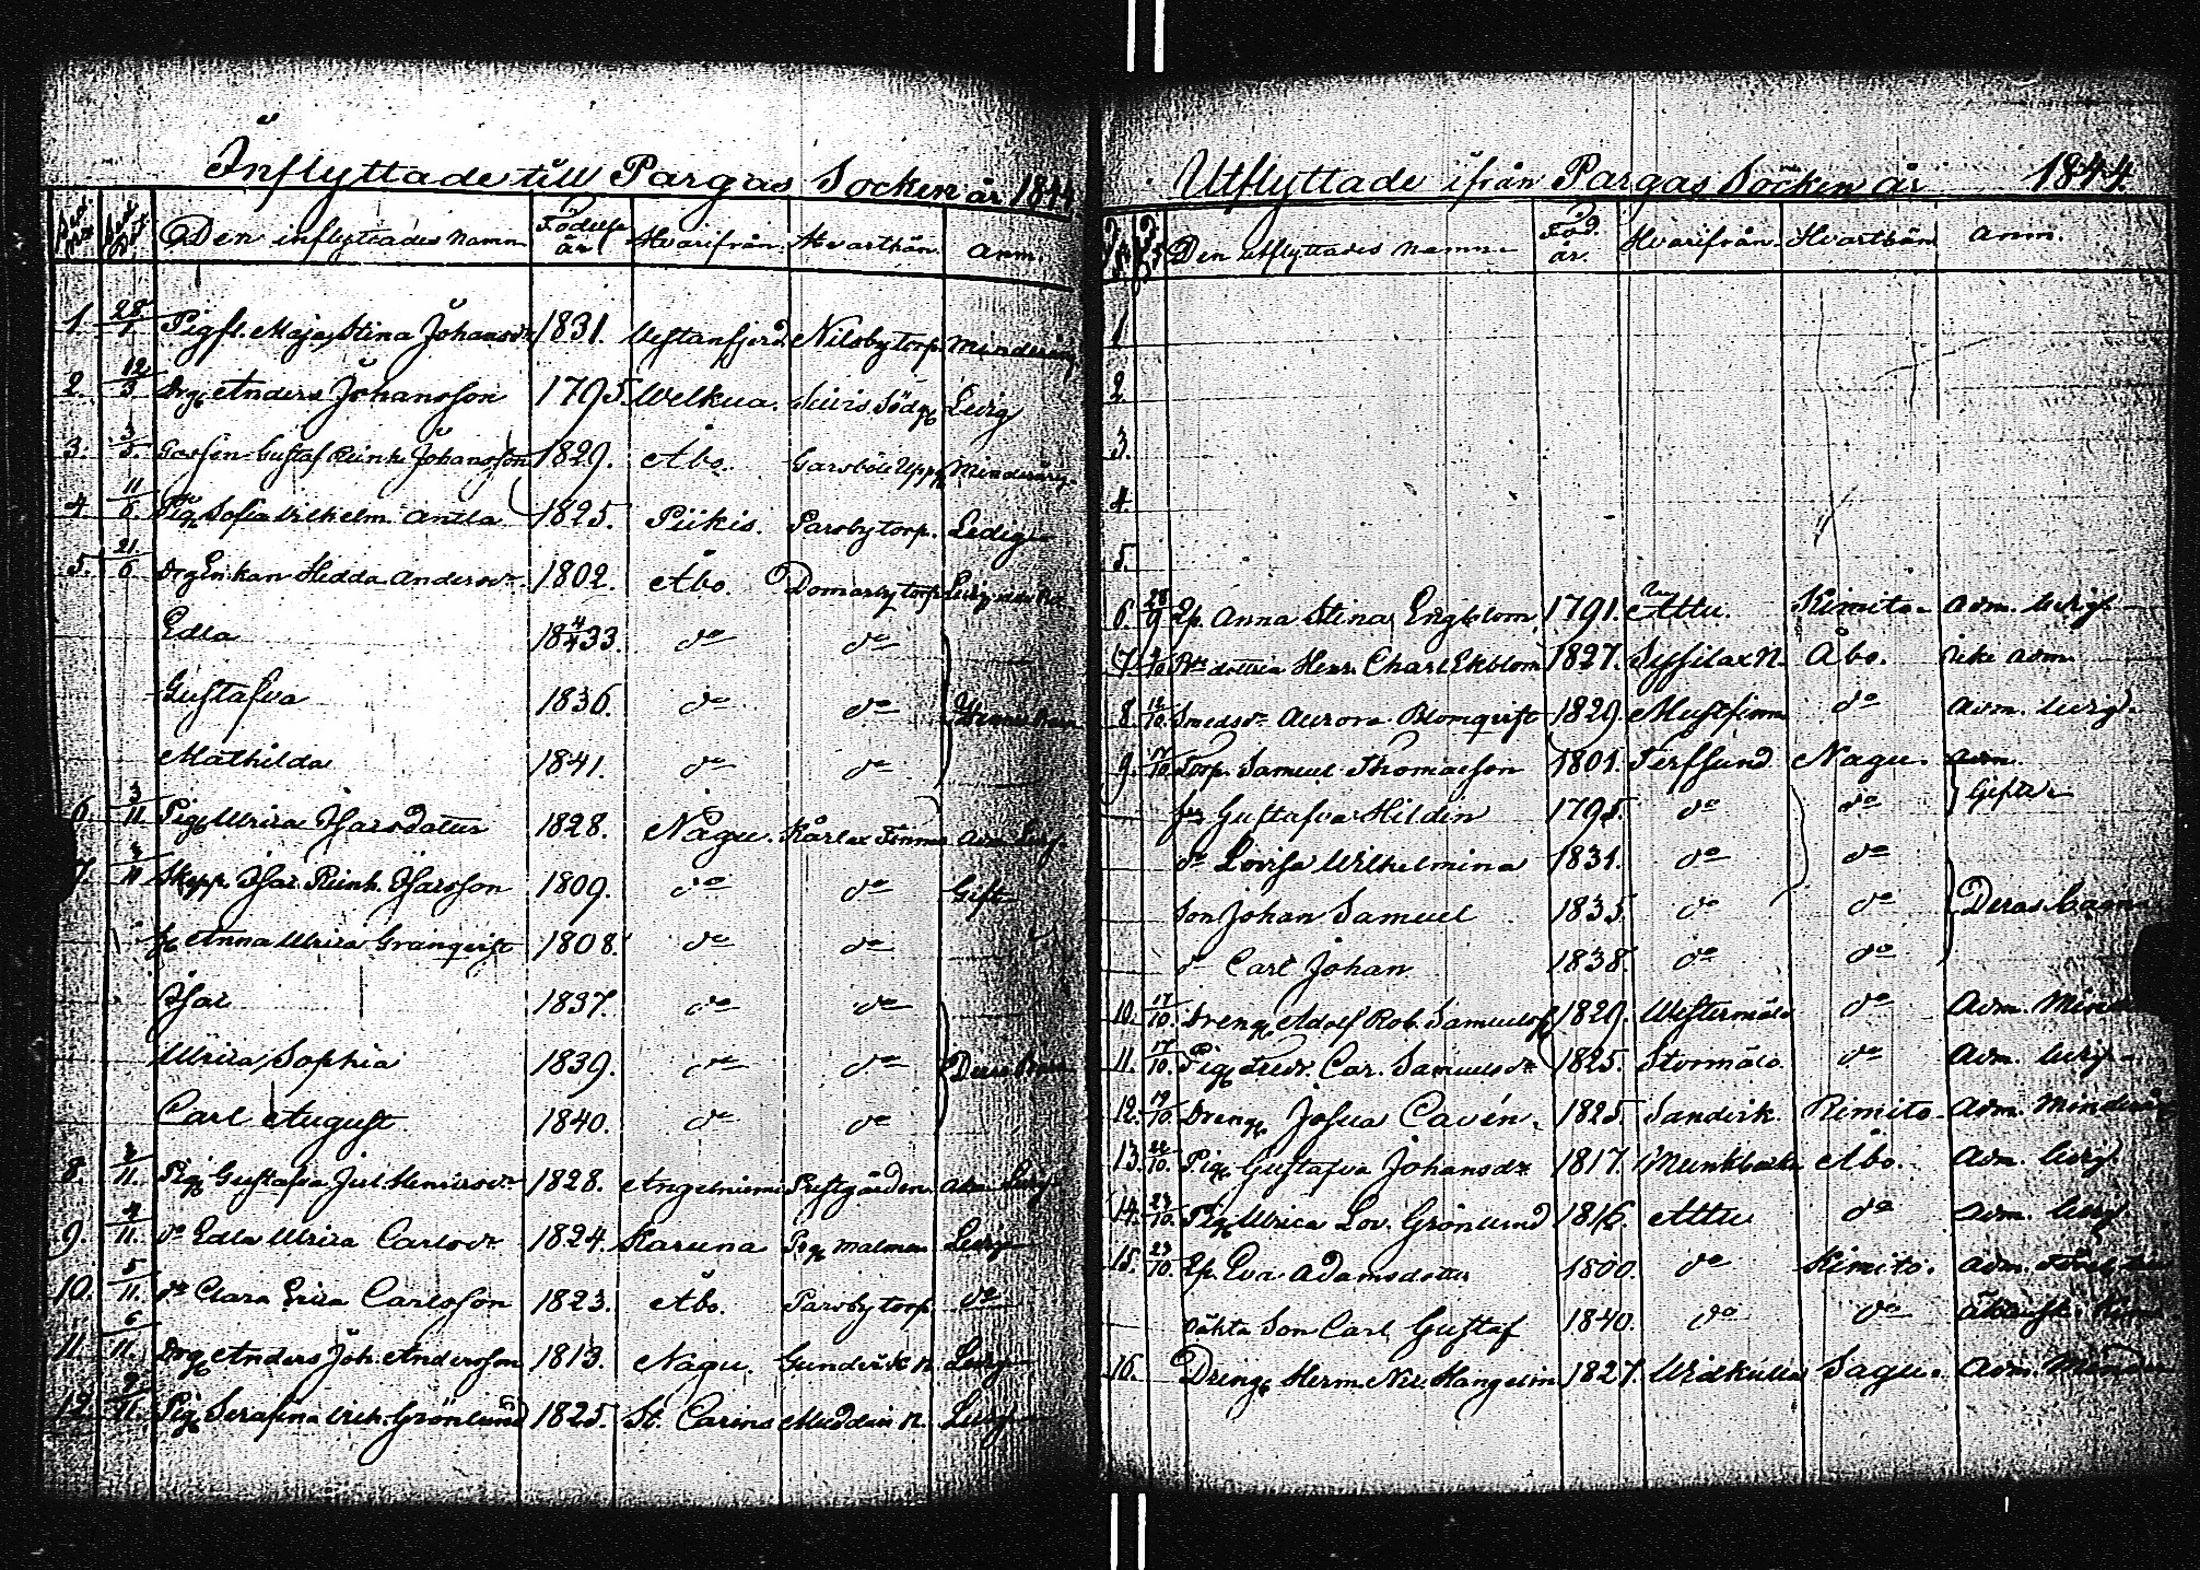 Inflyttade till Pargas Socken år 1844
Den inflyttades namn Födelse år Hvarifrån. Hvarthän. Anm.
1. 28/1 Pigfl. Maja Stina Johansdr 1831. Westanfjerd. Nilsby torp. Minderårig
2. 12/3 Drg. Anders Johansson 1795. Welkua. Södg. Ledig
3. 3/5. Gossen Gustaf Reinh. Johansson 1829. Åbo. Garsböle Uppg Minderårig.
4 11/6. Pig. Sofia Wilhelm. Antla 1825. Piikis. Parsby torp. Ledig
5. 21/6. Enkan Hedda Andersdr. 1802. Åbo. Domarby torp Ledig
Edla 18 4/4 33. do do
Gustafva 1836. do do
Mathilda 1841. do do
6. 3/11 Pig. Ulrica Isarsdatter 1828. Nagu. Kårlax
7. 3/11 Skepp. Isac. Reinh. Isacsson 1809. do do Gift
h. Anna Ulrica Granqvist 1808. do do
Isac 1837. do do
Ulrica Sophia 1839. do do Deras Barn
Carl August 1840. do do
8. 3/11. Pig. Gustafva Jul. Henricsdr. 1828. Angelniemi Prestgården. Adm. Ledig
9. 4/11. do Edla Ulrica Carlsdr 1824. Karuna Malmen Ledig
10. 5/11. do Clara Erica Carlsson 1823. Åbo. Parsby torp. do
11. 6/11. Drg. Anders Joh. Andersson 1813. Nagu. Gundvik n. Ledig
12. 9/11. Pig. Serafina Wilh. Grönlund 1825. St. Carins Muddais N. Ledig
Utflyttade ifrån Pargas Socken år 1844.
Den utflyttades namn Föd. år. Hvarifrån. Hvarthän Anm.
1
2
3.
4.
5.
6. 28/9 Ep. Anna Stina Engblom 1791. Attu. Kimito. Adm. ledig.
7. 9/10. dottren Henr. Charl. Ekblom 1827. Sysilax N. Åbo. icke adm.
8. 12/10. Smedsdr. Aurora Blomqvist 1829. Mustfinn do Adm. ledig.
9. 17/10. Torp. Samuel Thomasson 1801. Terfsund Nagu. Adm.
h. Gustafva Hildén 1795. do do Gifta
dr Lovisa Wilhelmina 1831. do do
Son Johan Samuel 1835 do do Deras barn
do Carl Johan 1838. do do
10. 17/10. Dreng. Adolf Rob. Samuelsson 1829. Westermälo do Adm. Mind
11. 17/10. Pig. Fredr. Car. Samuelsdr 1825. Stormälo. do Adm. ledig
12. 19/10. Dreng. Josua Cavén. 1825. Sandvik. Kimito. Adm. Minderårig
13. 22/10. Pig. Gustafva Johansdr 1817. Munkbacka Åbo. Adm. ledig
14. 23/10. Pig. Ulrica Lov. Grönlund 1816. Attu do Adm. ledig.
15. 23/10. Ep. Eva Adamsdotter 1800. do Kimito. Adm.
oäkta Son Carl Gustaf 1840. do do
16. Dreng. Herm. Nil. Hangelin 1827. Widkulla Sagu. Adm. Minder